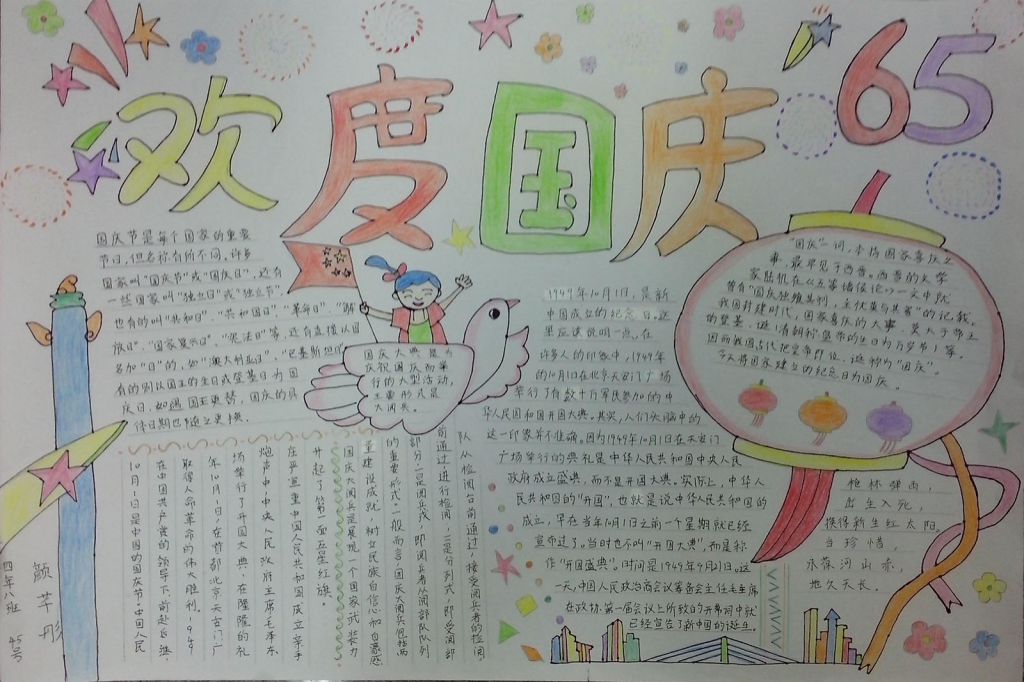 欢度国庆
65
国庆节是每个国家的重要
节日,但名称有所不同。许多
国家叫"国庆节"或"国庆日",还有
一些国家叫"独立日"或"独立节",
也有的叫"共和日"、"共和国日"、"革命日"、"解
放日"、"国家复兴日"、"宪法日"等,还有直接以国
名加"日"的,如"澳大利亚日"、"巴基斯坦日"
有的则以国王的生日或登基日为国
庆日,如遇国王更替,国庆的具
体日期也随之更换。
国庆大典是为
庆祝国庆而举
行的大型活动,
主要形式是
大阅兵。
1949年10月1日,是新
中国成立的纪念日。这
里应该说明一点,在
许多人的印象中,1949年
的10月1日在北京天安门广场
举行了有数十万军民参加的中
华人民共和国开国大典。其实,人们头脑中的
这一印象并不准确。因为1949年10月1日在天安门
广场举行的典礼是中华人民共和国中央人民
政府成立盛典,而不是开国大典。实际上,中华人
民共和国的"开国",也就是说中华人民共和国的
成立,早在当年10月1日之前一个星期就已经
宣布过了。当时也不叫"开国大典",而是称
作"开国盛典"。时间是1949年9月21日。这
一天,中国人民政治商会议筹备会主任毛主席
在政协第一届会议上所致的开幕词中就
已经宣告了新中国的诞生。
"国庆"一词,本指国家喜庆之
事,最早见于西晋。西晋的文学
家陆机在《五等诸侯论》一文中就
曾有"国庆独飨其利,主忧莫与其害"的记载。
我国封建时代,国家喜庆的大事,莫大于帝王
的登基、诞(清朝称皇帝的生日为万岁节)等。
因而我国古代把皇帝即位、诞辰称为"国庆"。
今天称国家建立的纪念日为国庆。
枪林弹雨,
出生入死,
换得新生红太阳。
当珍惜,
永葆河山赤,
地久天长。
10月1日是中国的国庆节。中国人民
在中国共产党的领导下,前赴后继,
取得人命革命的伟大胜利。1949
年10月1日,在首都北京天安门广
场举行了开国大典,在隆隆的礼
炮声中,中央人民政府主席毛泽东
在庄严宣重中国人民共和国成立亲手
升起了第一面五星红旗。
国庆大阅兵是展视一个国家武装力
量建设成就,树立民族自信心和自豪感
的重要形式,一般而言,国庆大阅兵包括两
部分:一是阅兵式,即阅兵者从阅部队队列
前通过进行检阅;二是分列式,即受阅部
队从检阅台前通过,接受阅兵者的检阅。
四年八班
颜芊彤
45号